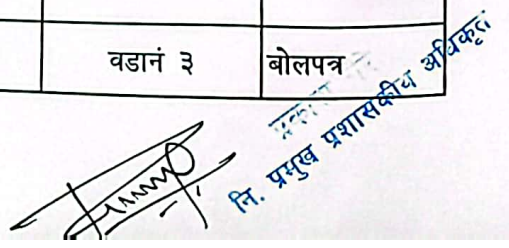 वडानं ३ बोलपत्र
नि. प्रमुख प्रशासकीय अधिकृत